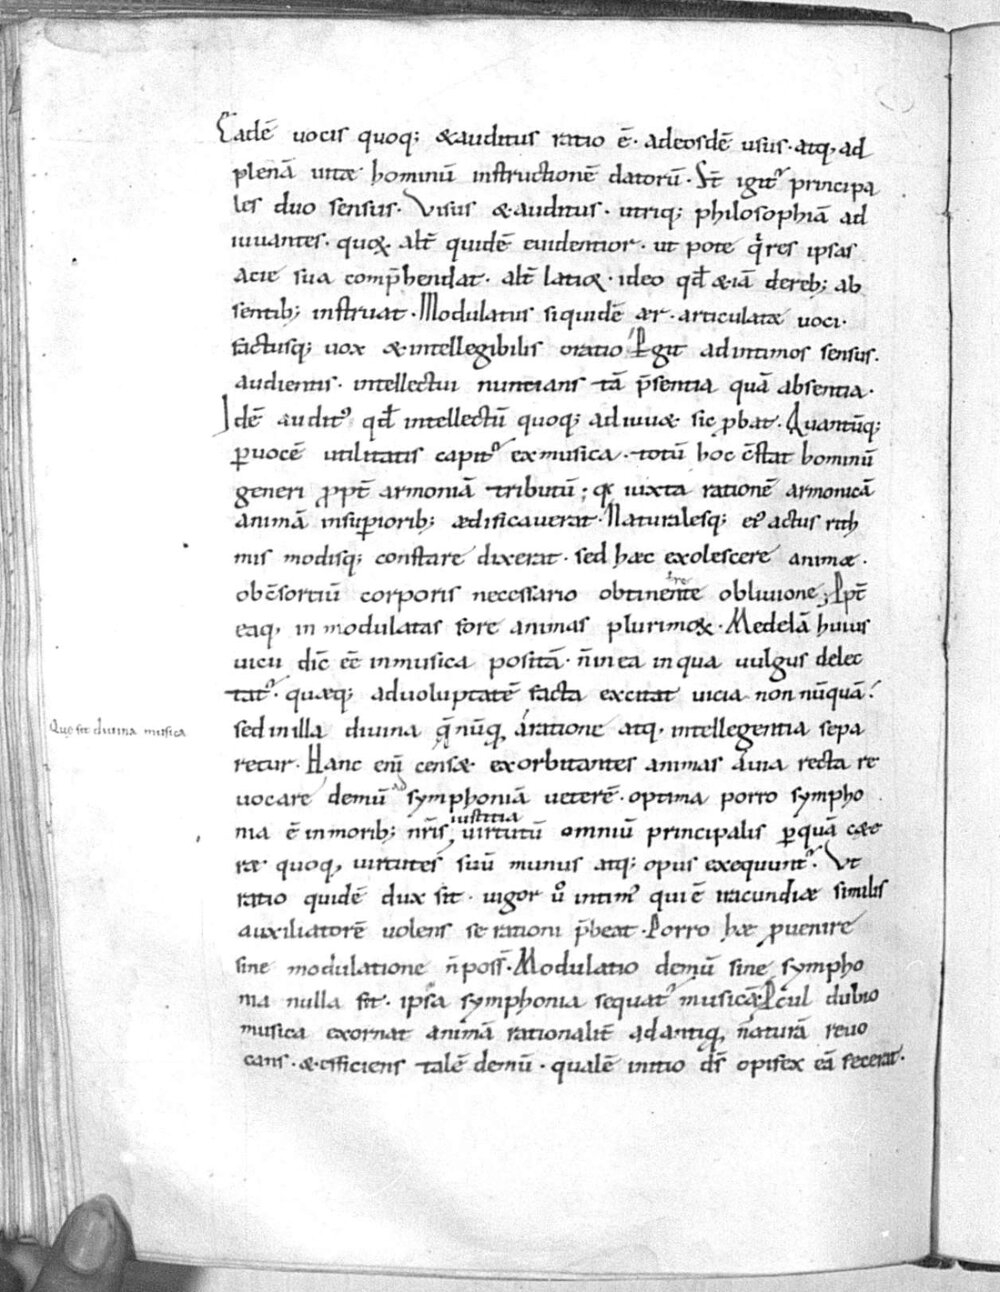 Eadē uocis quoq; & auditus ratio ē· adeosdē usus· atq, ad
plenā uitæ hominū instructionē datorū· St̄ igit᷒ principa
les duo sensus· Visus & auditus· utriq; philosophiā ad
iuuantes· quoꝝ· alt̄ quidē euidentior· ut pote q͛ res ipsas
acie sua comp̄hendat· alt̄ latioꝝ· ideo qđ & iā dereb; ab
sentib; instruat· Modulatus siquidē aer· articulatæ uoci·
factusq; uox & intellegibilis oratio Pgit ad intimos sensus·
audientis· intellectui nuntians tā p̄sentia quā absentia·
Idē audit᷒ qđ intellectū quoq; ad iuuæ sic ꝓbat· Quantūq;
ꝑuocē utilitatis capit᷒ ex musica· totū hoc c̄stat hominū
generi ꝓpt̄ armoniā tributū; qꝫ iuxta rationē armonicā
animā insuꝑiorib; ædificauerat· Naturalesq; ei᷒ actus rith
mis modisq; constare dixerat· sed hæc exolescere animæ·
ob c̄sortiū corporis necessario obtinente oblivione; Ppt̄
eaq, in modulatas fore animas plurimoꝝ· Medelā huius
uicii dic̄ eē in musica positā· n̄ in ea in qua uulgus delec
tat᷒· quæq; ad uoluptatē facta excitat uicia non nūquā·
sed in illa diuina q̄ nūq, a ratione atq, intellegentia sepa
Quę sit diuina musica
retur· Hanc eni censæ exorbitantes animas a uia recta re
uocare demū ad symphoniā ueterē· optima porro sympho
iustitia
nia ē in morib; nr̄is, uirtutū omniū principalis ꝑquā cæte
ræ quoq, uirtutes suū munus atq; opus exequunt᷒· Vt
ratio quidē dux sit· uigor u͛o intim᷒ qui ē iracundiæ similis
auxiliatorē uolens se rationi p̄beat· Porro hæc ꝓuenire
sine modulatione n̄ poss̄· Modulatio demū sine sympho
nia nulla sit· ipsa symphonia sequat᷒ musicā Pcul dubio
musica exornat animā rationalit̄ ad antiq, naturā reuo
cans· & efficiens talē demū· qualē initio ds̄ opifex eā fecerat·